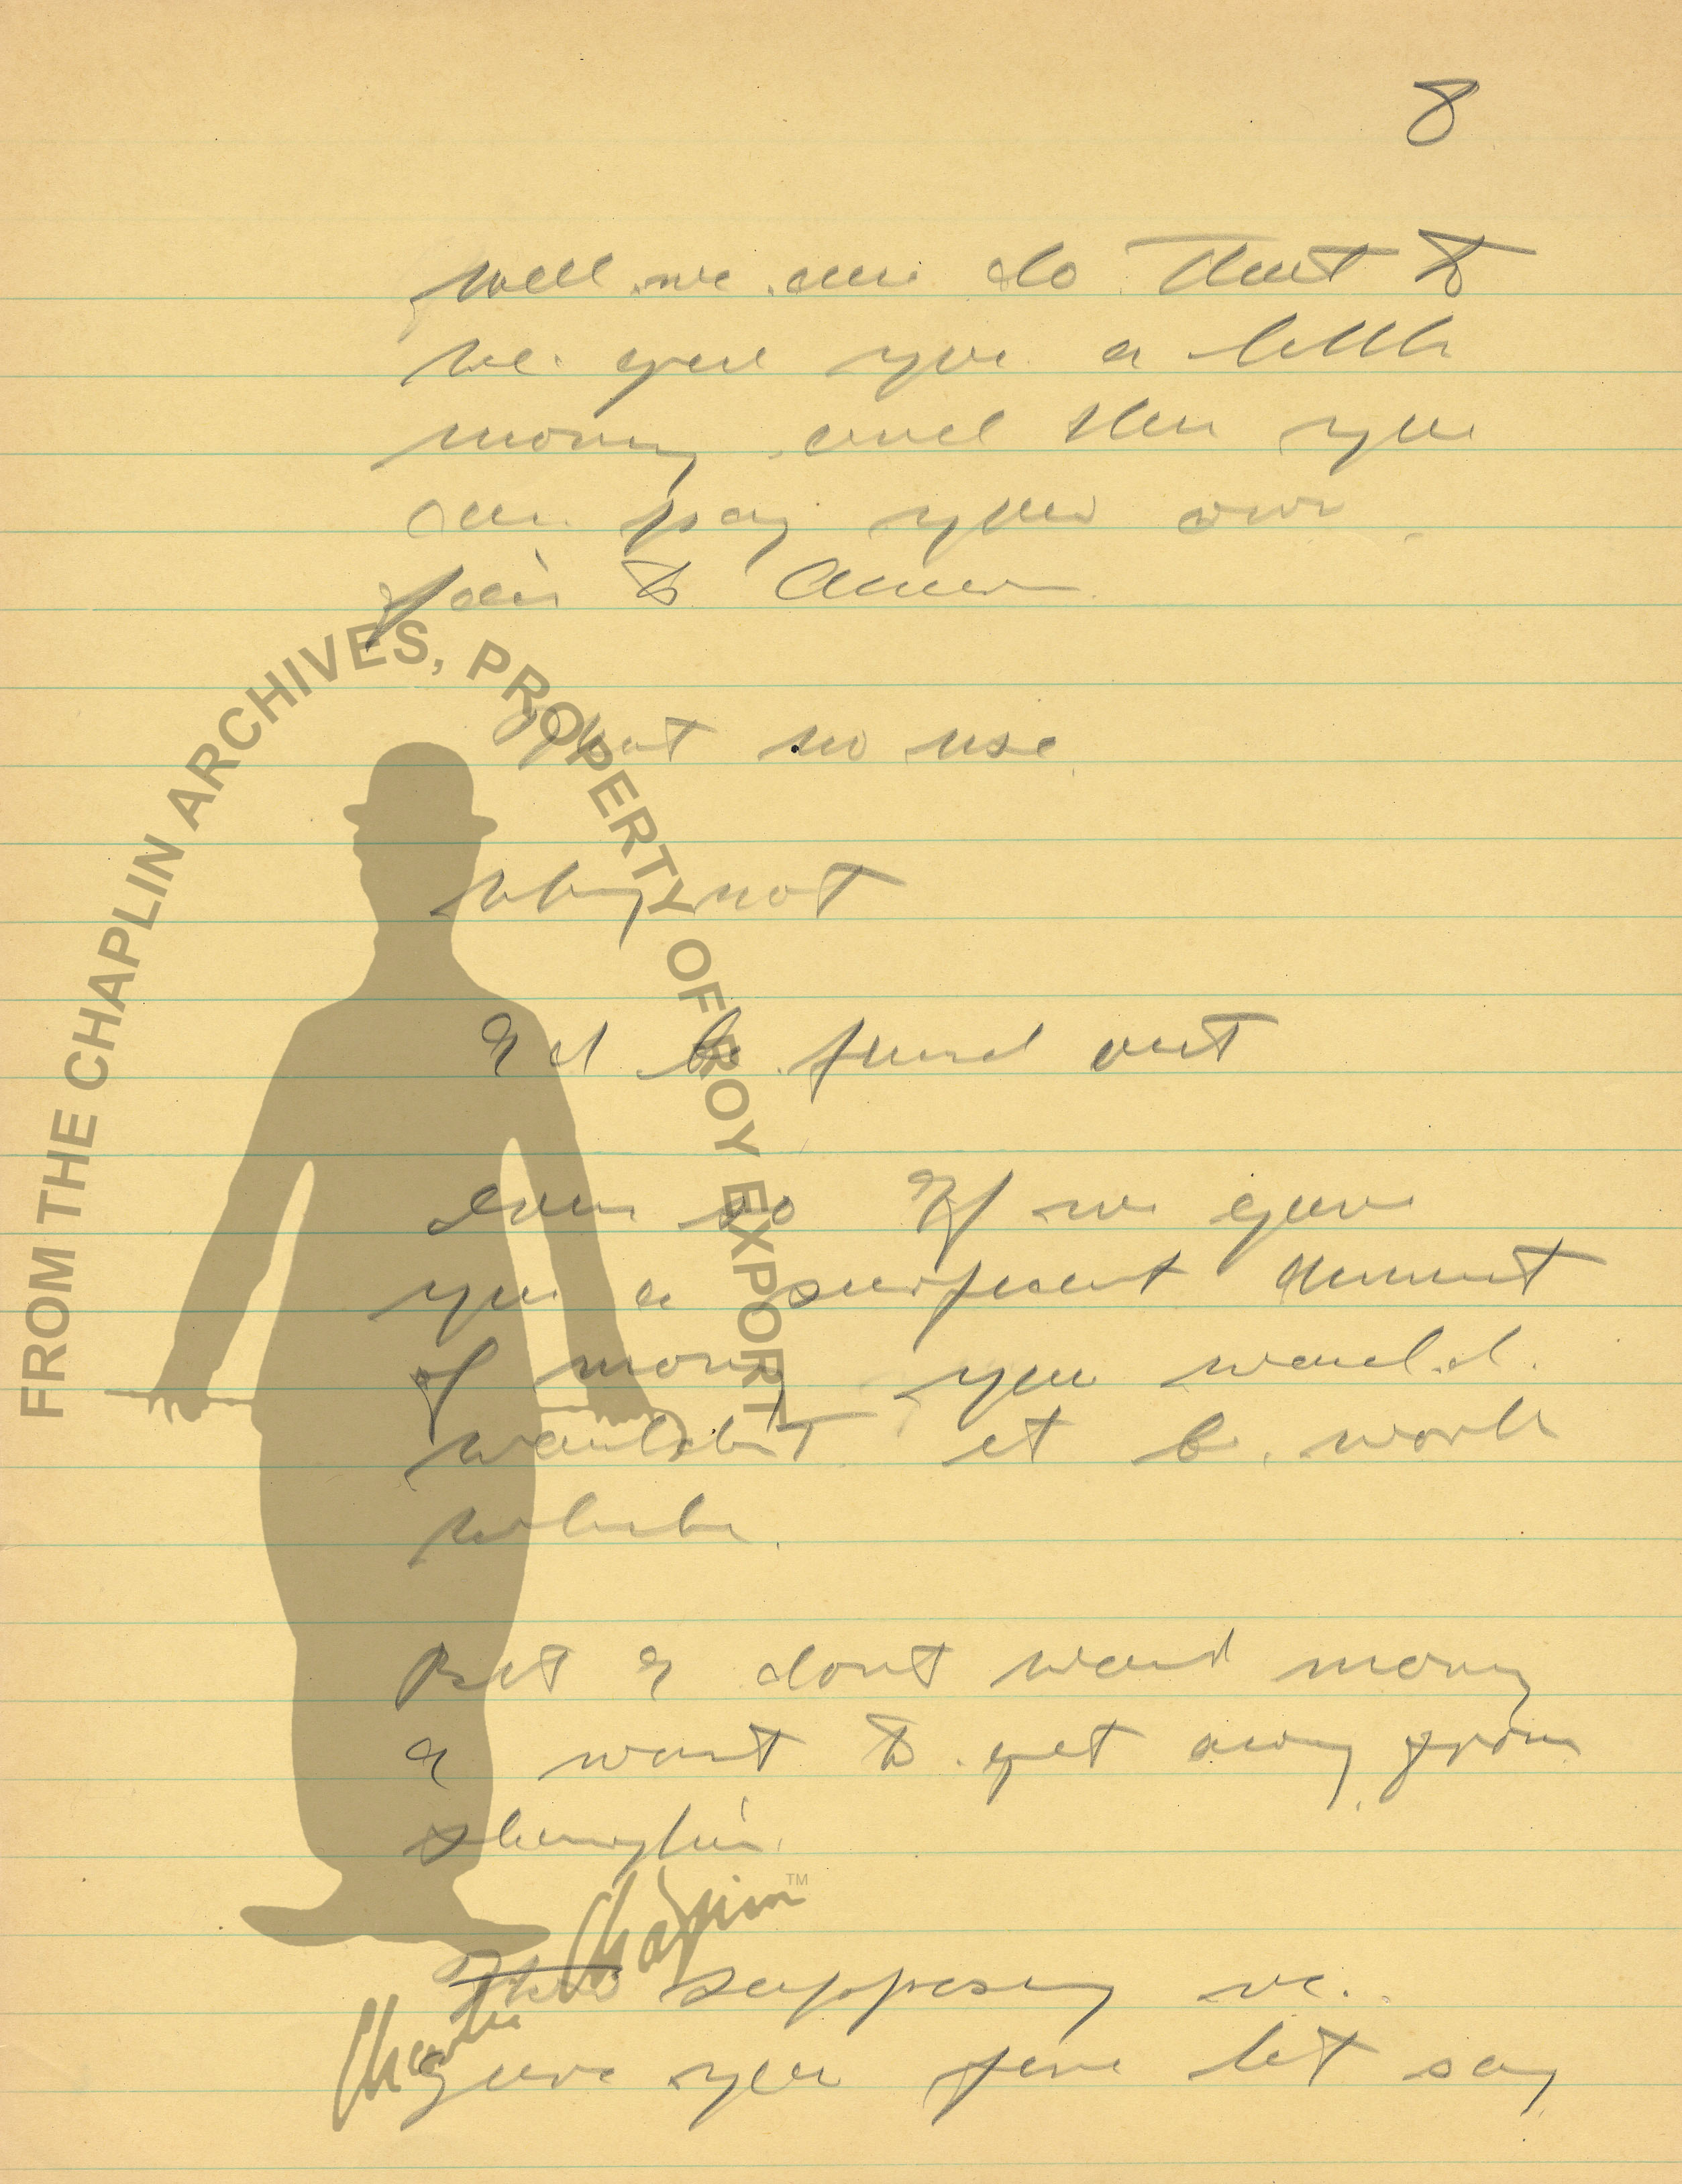 8
well we can do that to
we give you a little
money and then you
can pay your own
fair to America
that no use
why not
I d be found out
even so If we gave
you a suficent amount
of money you would.
wouldn't it be worth
while.
But I dont want money
I want to get away from
Shanghai.
supposing we.
gave you five let say
FROM THE CHAPLIN ARCHIVES, PROPERTY OF ROY EXPORT
Charlie Chaplin™